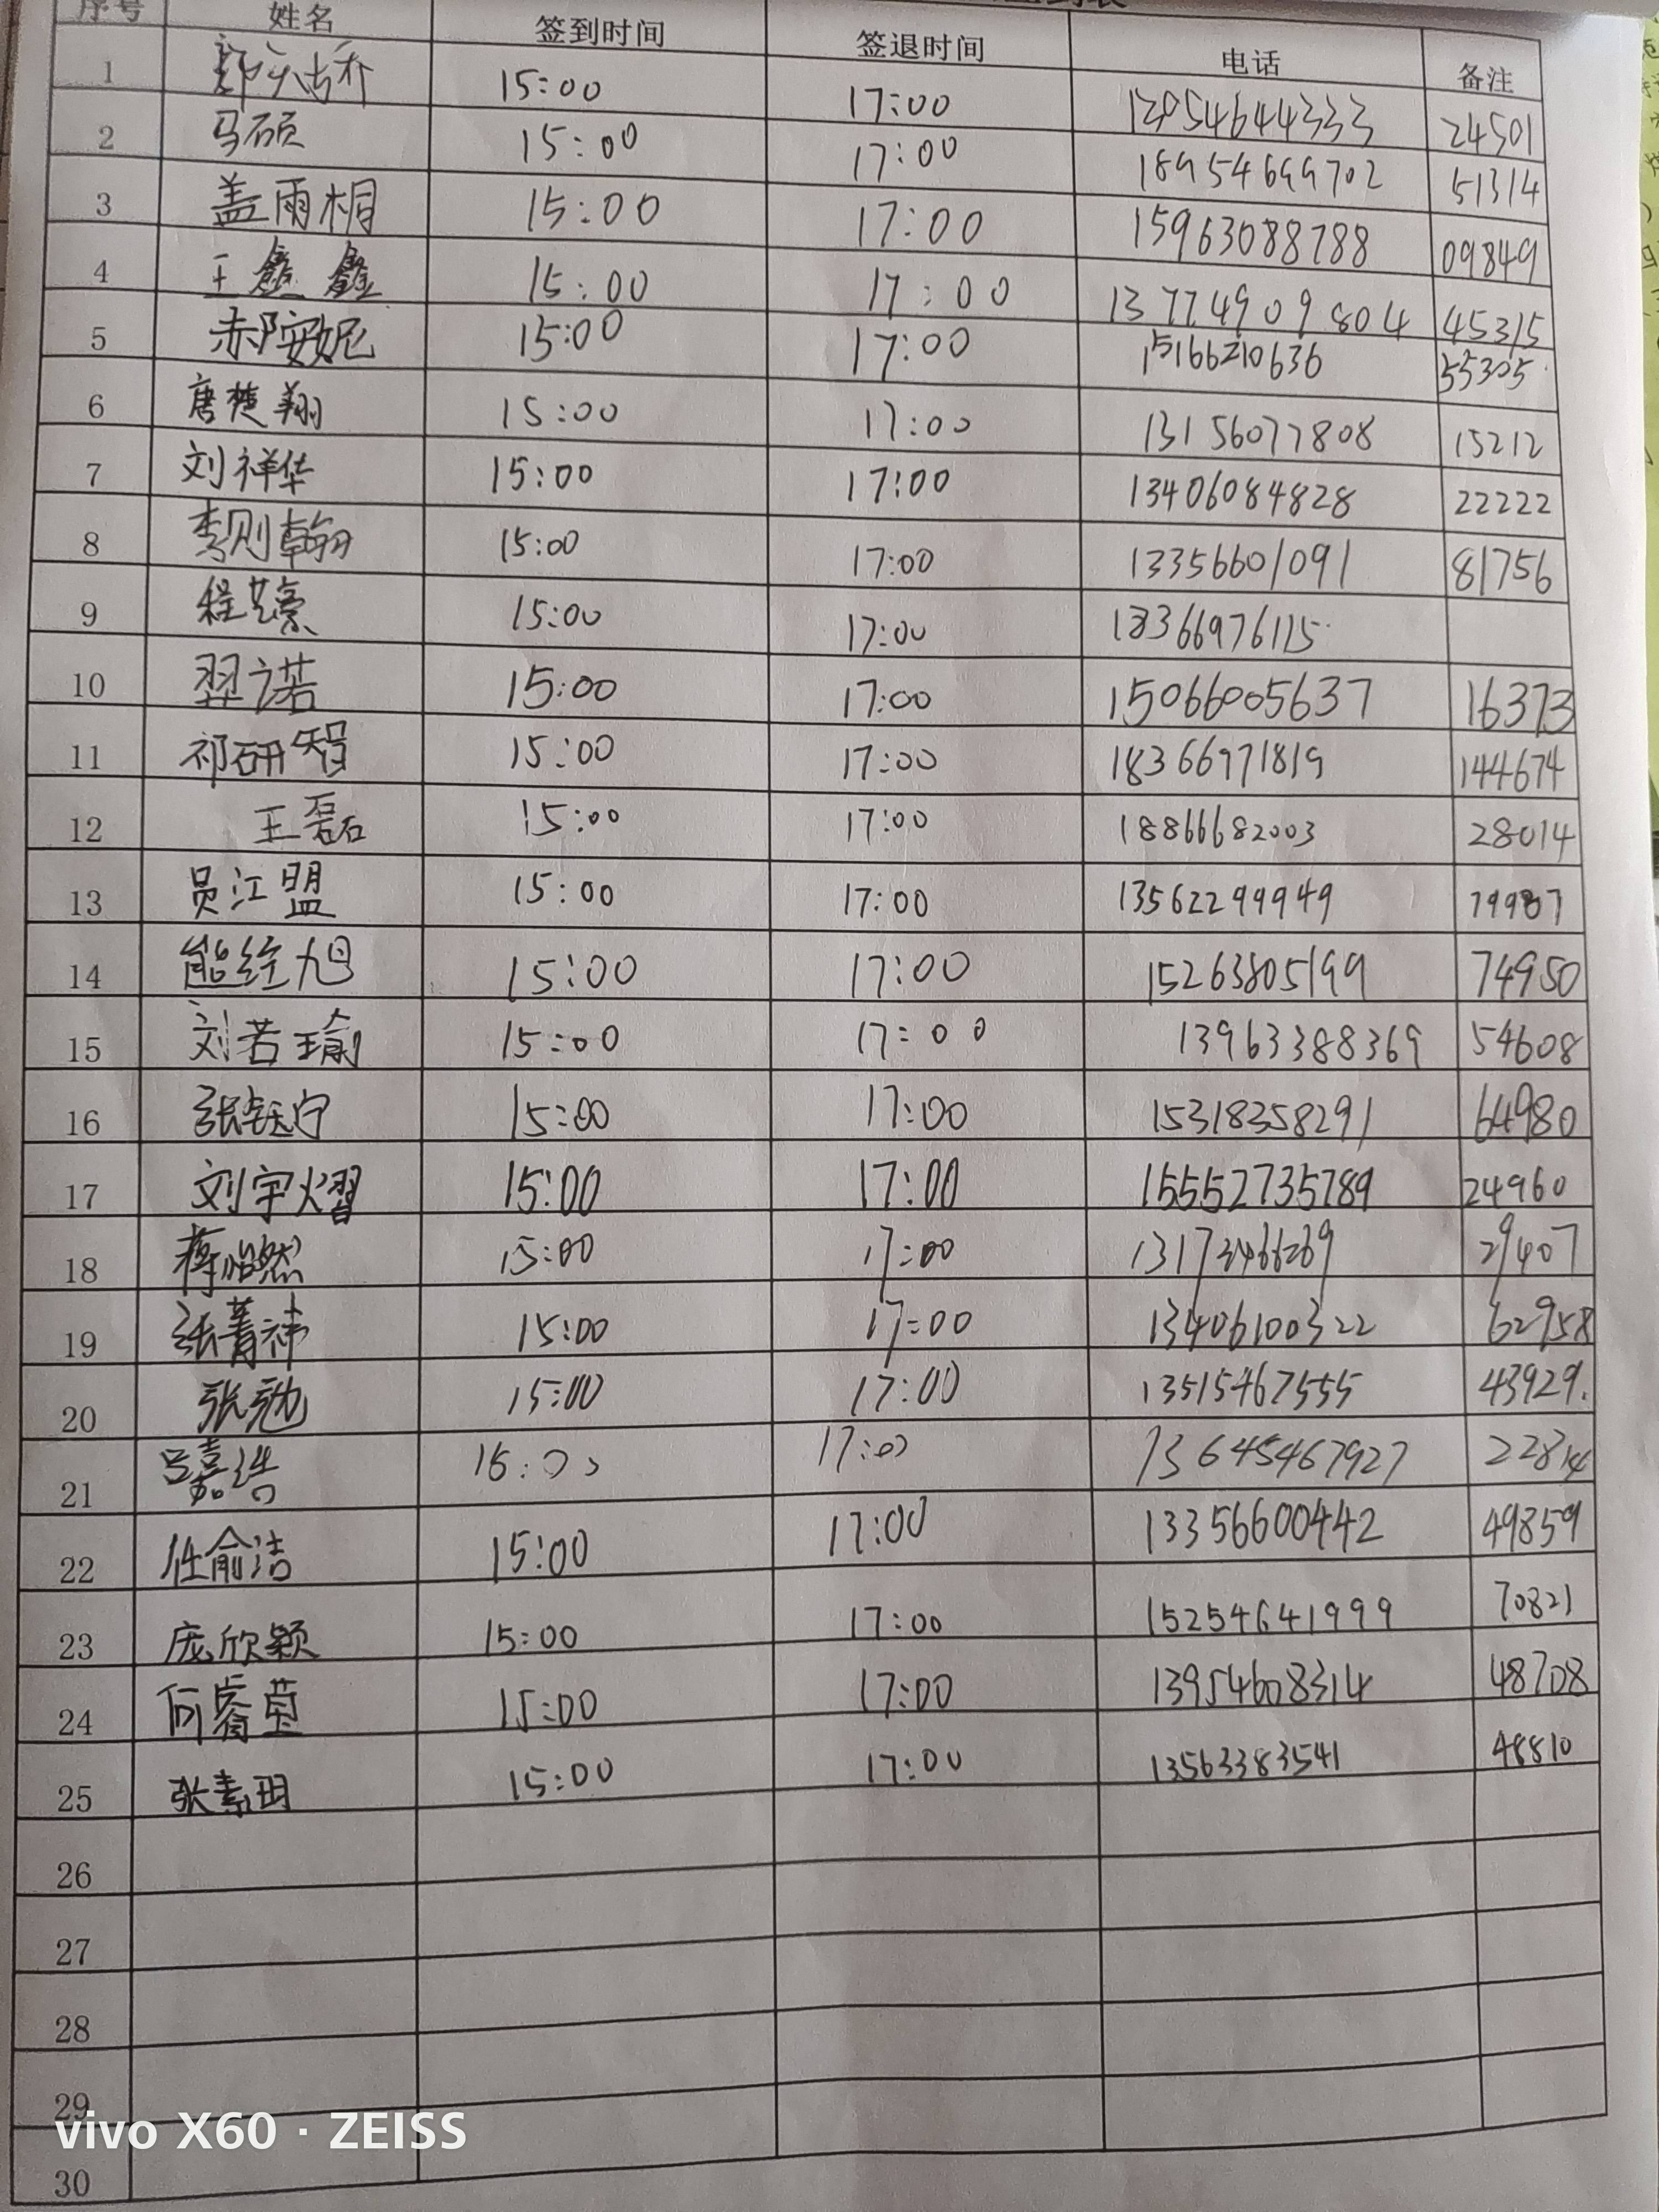 序号 姓名 签到时间 签退时间 电话 备注
1 15:00 17:00 13954644333 24501
2 马硕 15:00 17:00 18954699702 51314
3 盖雨桐 15:00 17:00 15963088788 09849
4 王鑫鑫 15:00 17:00 13774909804 45315
5 郝安妮 15:00 17:00 15166210636 55305
6 唐楚翔 15:00 17:00 13156077808 15212
7 刘祥华 15:00 17:00 13406084828 22222
8 李则翰 15:00 17:00 13356601091 81756
9 程艺豪 15:00 17:00 18366976115
10 15:00 17:00 15066005637 16373
11 祁研智 15:00 17:00 18366971819 144674
12 王磊 15:00 17:00 18866682003 28014
13 员江盟 15:00 17:00 13562299949 79987
14 熊经旭 15:00 17:00 15263805199 74950
15 刘若瑜 15:00 17:00 13963388369 54608
16 张钰宁 15:00 17:00 15318358291 64980
17 刘宇熠 15:00 17:00 15552735789 24960
18 蒋怡然 15:00 17:00 13173466269 29407
19 张菁祎 15:00 17:00 13406100322 62958
20 15:00 17:00 13515467555 43929.
21 吕嘉浩 17:00 13645467927
22 任俞洁 15:00 17:00 13356600442 49859
23 庞欣颖 15:00 17:00 15254641999 70821
24 何睿莹 15:00 17:00 13954608314 48708
25 张素玥 15:00 17:00 13563383541 48810
26
27
28
29
30
vivo X60 · ZEISS